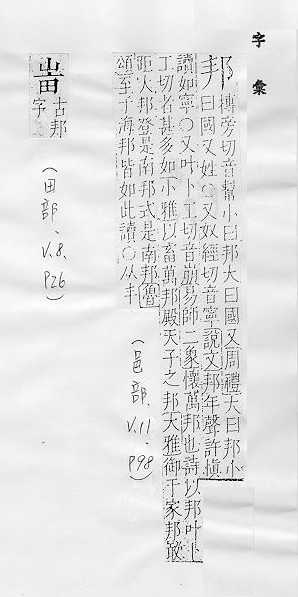 字彙
邦 博旁切音幫小曰邦大曰國又周禮大曰邦小
曰國又姓○又奴經切音寧說文邦年聲許慎
讀如寧○又叶卜工切音崩易師二象懷萬邦也詩以邦叶卜
工切者甚多如小雅以畜萬邦殿天子之邦大雅御于家邦敢
距大邦登是南邦式是南邦魯
頌至于海邦皆如此讀○从丰
(邑部、V.11、P98)
古邦
字
(田部、V.8、P26)